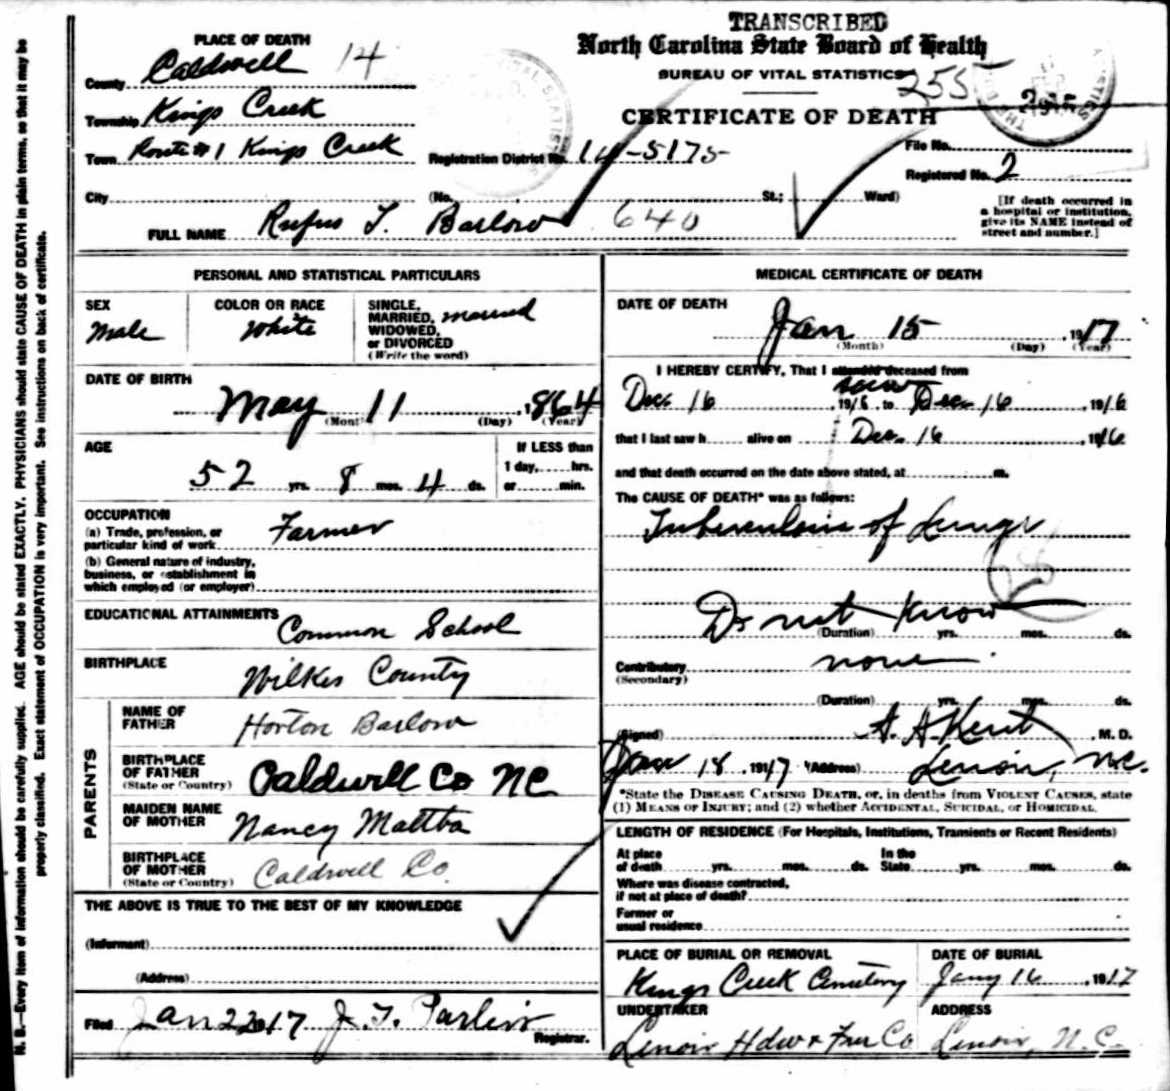 TRANSCRIBED
North Carolina State Board of Health
BUREAU OF VITAL STATISTICS
255
CERTIFICATE OF DEATH
PLACE OF DEATH
County Caldwell 14
Township Kings Creek
Town Route #1 Kings Creek
Registration District No. 14-5175
File No.
Registered No. 2
City (No. St.; Ward)
[If death occurred in a hospital or institution, give its NAME instead of street and number.]
FULL NAME Rufus T. Barlow 640
PERSONAL AND STATISTICAL PARTICULARS
SEX
Male
COLOR OR RACE
White
SINGLE, MARRIED, WIDOWED, or DIVORCED (Write the word)
married
DATE OF BIRTH
May 11, 1864
(Month) (Day) (Year)
AGE
52 yrs. 8 mos. 4 ds.
If LESS than 1 day, hrs. or min.
OCCUPATION
(a) Trade, profession, or particular kind of work Farmer
(b) General nature of industry, business, or establishment in which employed (or employer)
EDUCATIONAL ATTAINMENTS
Common School
BIRTHPLACE
Wilkes County
PARENTS
NAME OF FATHER
Horton Barlow
BIRTHPLACE OF FATHER (State or Country)
Caldwell Co NC
MAIDEN NAME OF MOTHER
Nancy
BIRTHPLACE OF MOTHER (State or Country)
Caldwell Co.
THE ABOVE IS TRUE TO THE BEST OF MY KNOWLEDGE
(Informant)
(Address)
Filed Jan 22 1917 J. T.
Registrar.
MEDICAL CERTIFICATE OF DEATH
DATE OF DEATH
Jan 15, 1917
(Month) (Day) (Year)
I HEREBY CERTIFY, That I attended deceased from
saw
Dec 16, 1916, to Dec. 16, 1916
that I last saw h alive on Dec. 16, 1916
and that death occurred on the date above stated, at m.
The CAUSE OF DEATH* was as follows:
Tuberculosis of Lungs
28
Do not Know
(Duration) yrs. mos. ds.
Contributory none
(Secondary)
(Duration) yrs. mos. ds.
(Signed) A. A. Kent, M. D.
Jan 18, 1917 (Address) Lenoir, N.C.
*State the DISEASE CAUSING DEATH, or, in deaths from VIOLENT CAUSES, state (1) MEANS OF INJURY; and (2) whether ACCIDENTAL, SUICIDAL, OR HOMICIDAL.
LENGTH OF RESIDENCE (For Hospitals, Institutions, Transients or Recent Residents)
At place of death yrs. mos. ds. In the State yrs. mos. ds.
Where was disease contracted, if not at place of death?
Former or usual residence
PLACE OF BURIAL OR REMOVAL
Kings Creek Cemetery
DATE OF BURIAL
Jany 16, 1917
UNDERTAKER
Lenoir Hdw & Fur Co
ADDRESS
Lenoir, N.C.
N. B.—Every item of information should be carefully supplied. AGE should be stated EXACTLY. PHYSICIANS should state CAUSE OF DEATH in plain terms, so that it may be properly classified. Exact statement of OCCUPATION is very important. See instructions on back of certificate.